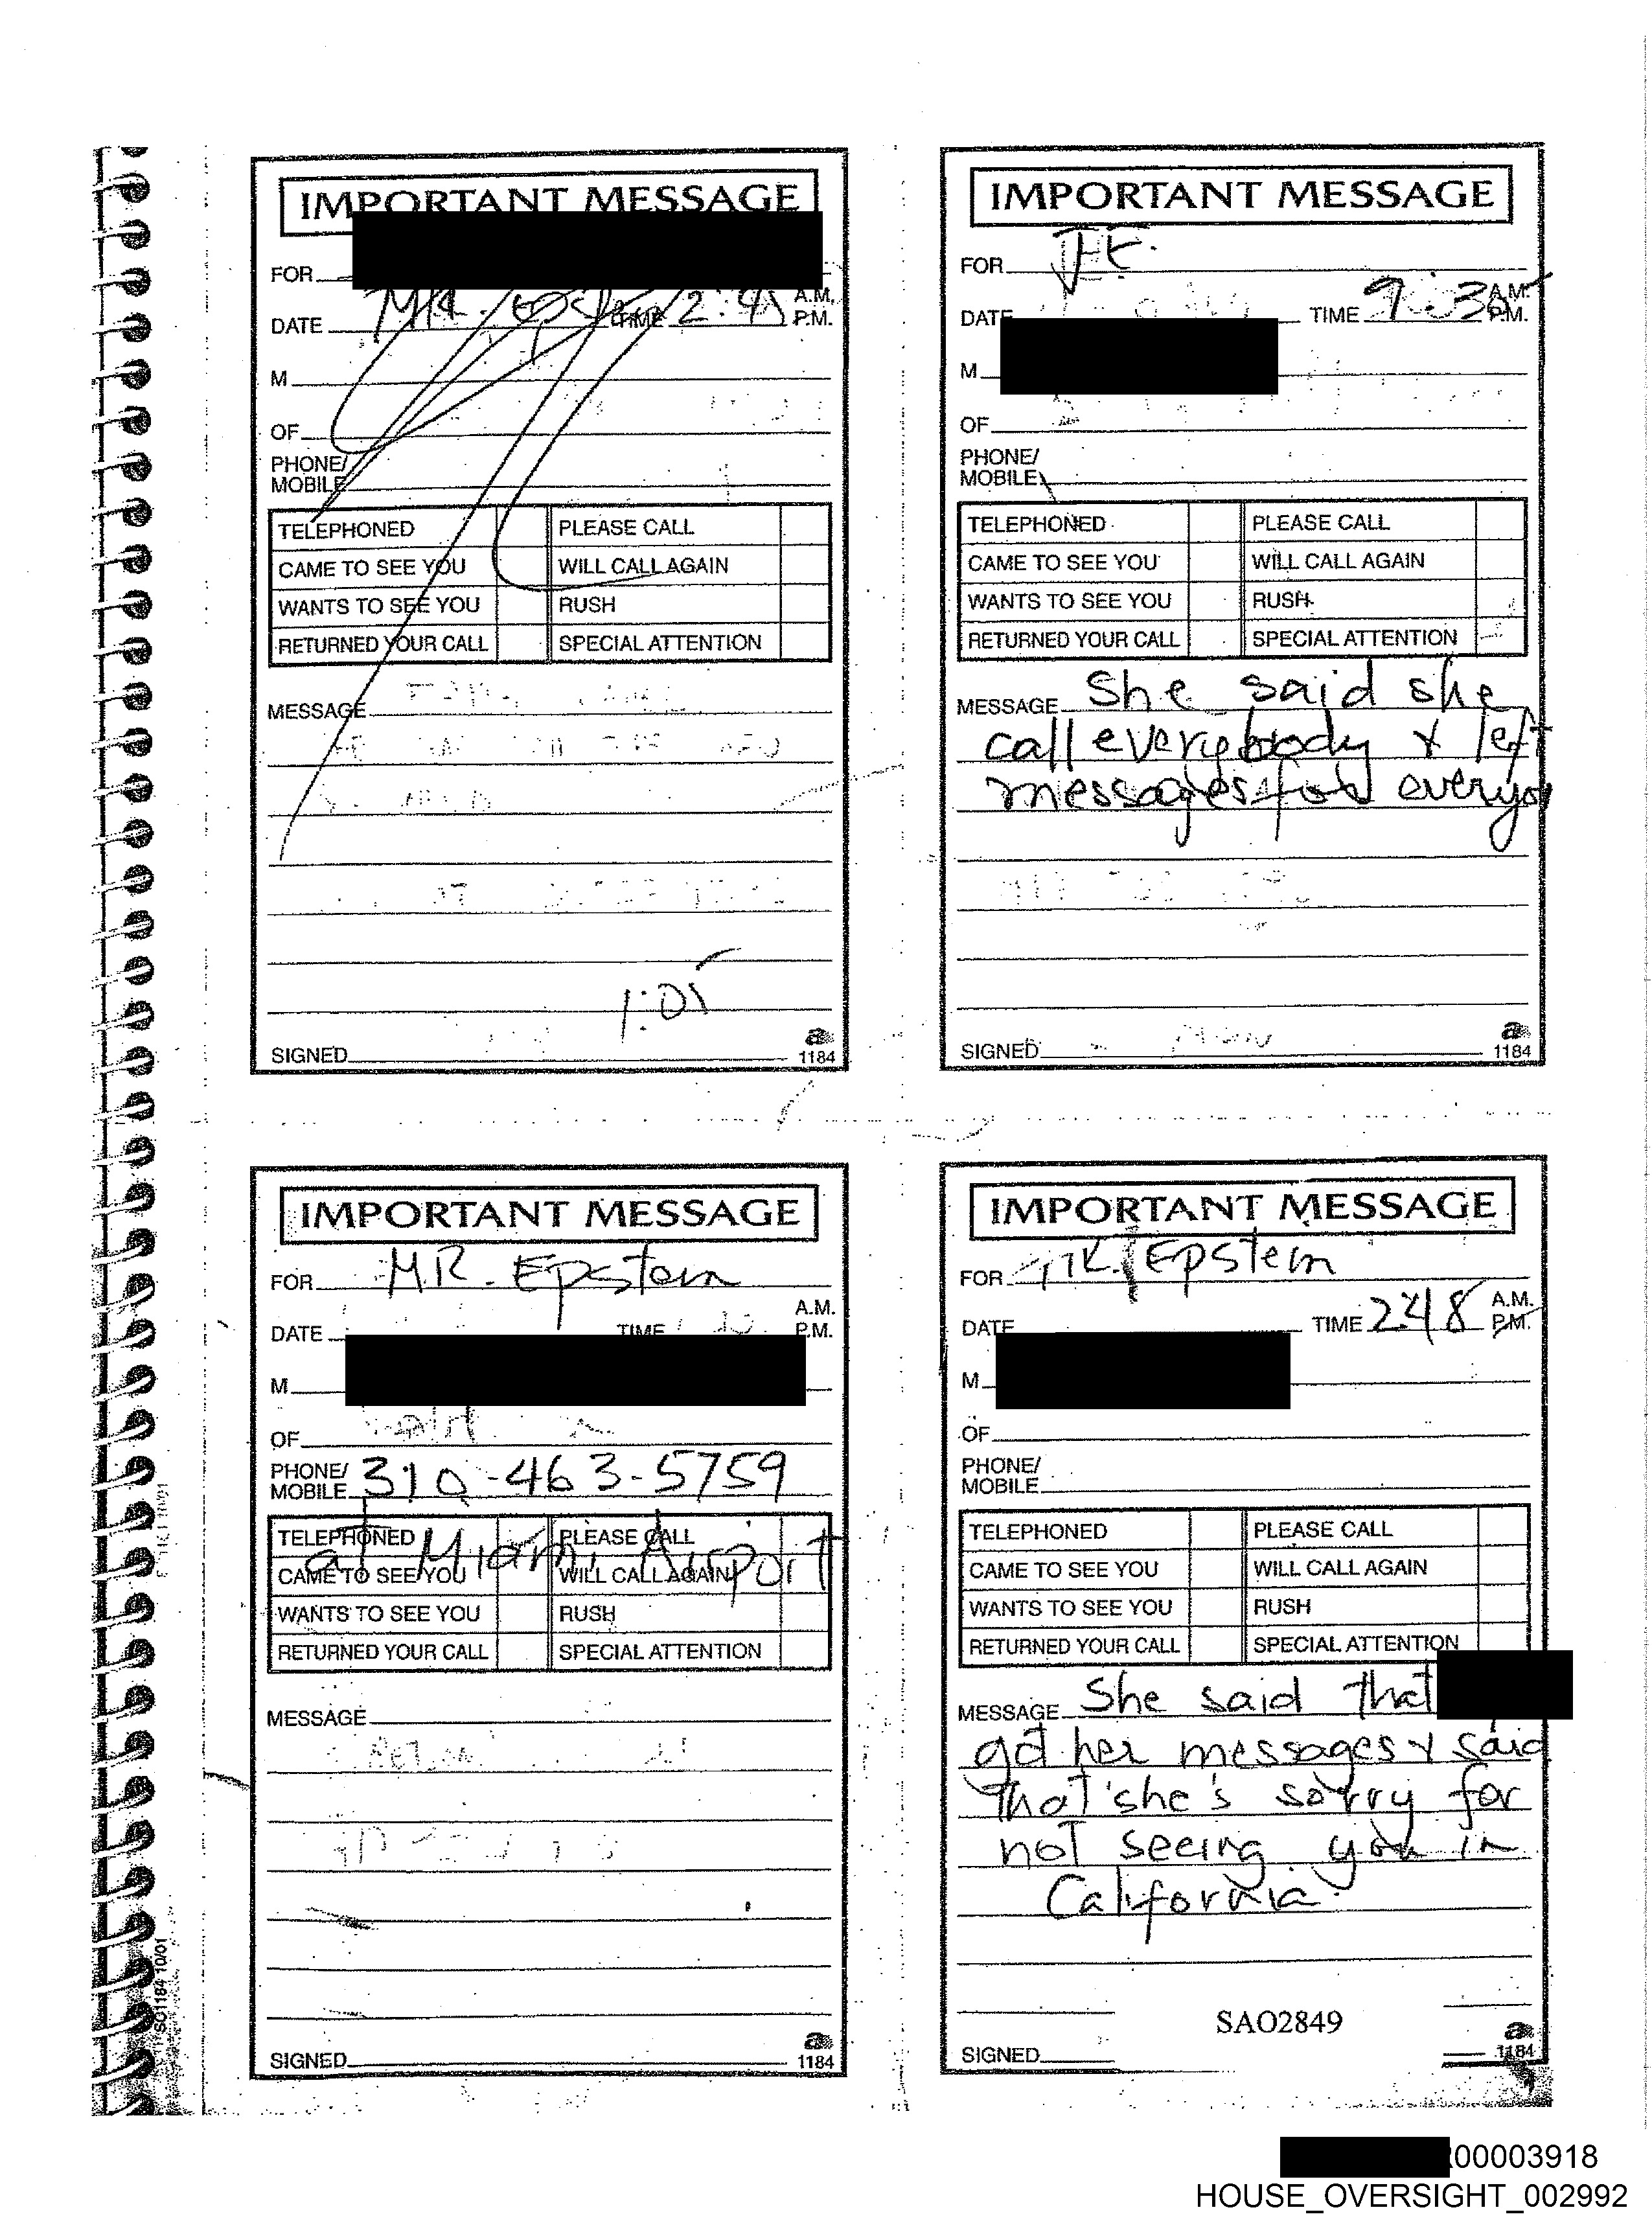 IMPORTANT MESSAGE
FOR
DATE MR. TIME 2:45 A.M.
P.M.
M
OF
PHONE/
MOBILE
TELEPHONED PLEASE CALL
CAME TO SEE YOU WILL CALL AGAIN
WANTS TO SEE YOU RUSH
RETURNED YOUR CALL SPECIAL ATTENTION
MESSAGE
1:05
SIGNED
a
1184
IMPORTANT MESSAGE
FOR J.E.
DATE TIME 9:35 A.M.
P.M.
M
OF
PHONE/
MOBILE
TELEPHONED PLEASE CALL
CAME TO SEE YOU WILL CALL AGAIN
WANTS TO SEE YOU RUSH
RETURNED YOUR CALL SPECIAL ATTENTION
MESSAGE She said she
call everybody & left
messages for
SIGNED
a
1184
IMPORTANT MESSAGE
FOR MR. Epstein
DATE TIME A.M.
P.M.
M
OF
PHONE/
MOBILE 310-463-5759
at Miami Airport
TELEPHONED PLEASE CALL
CAME TO SEE YOU WILL CALL AGAIN
WANTS TO SEE YOU RUSH
RETURNED YOUR CALL SPECIAL ATTENTION
MESSAGE
SIGNED
a
1184
SC1184 10/01
IMPORTANT MESSAGE
FOR MR. Epstein
DATE TIME 2:48 A.M.
P.M.
M
OF
PHONE/
MOBILE
TELEPHONED PLEASE CALL
CAME TO SEE YOU WILL CALL AGAIN
WANTS TO SEE YOU RUSH
RETURNED YOUR CALL SPECIAL ATTENTION
MESSAGE She said that
got her messages & said
that she's sorry for
not seeing you in
California.
SAO2849
SIGNED
a
1184
00003918
HOUSE_OVERSIGHT_002992